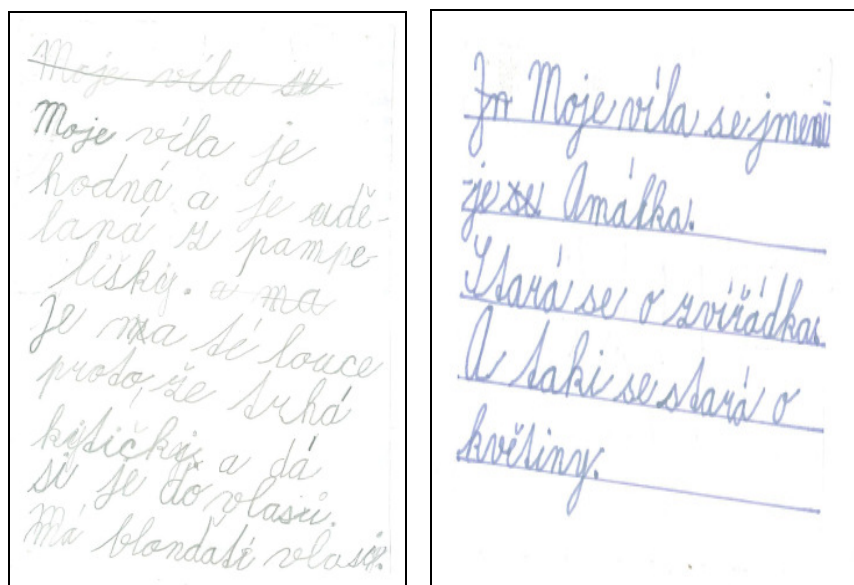 Moje víla se
Moje víla je
hodná a je udě-
laná z pampe-
lišky. a ma
Je na té louce
proto, že trhá
kytičky a dá
si je do vlasů.
Má blonďatí vlasy.
Jn Moje víla se jmenu
je se Amálka.
Stará se o zvířádka.
A taki se stará o
květiny.